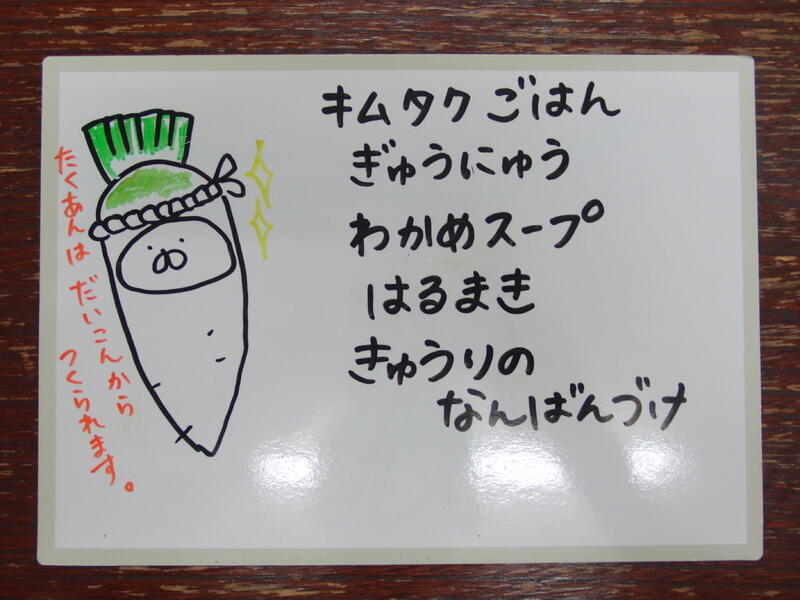 キムタクごはん
ぎゅうにゅう
わかめスープ
はるまき
きゅうりの
なんばんづけ
たくあんは だいこんから
つくられます。